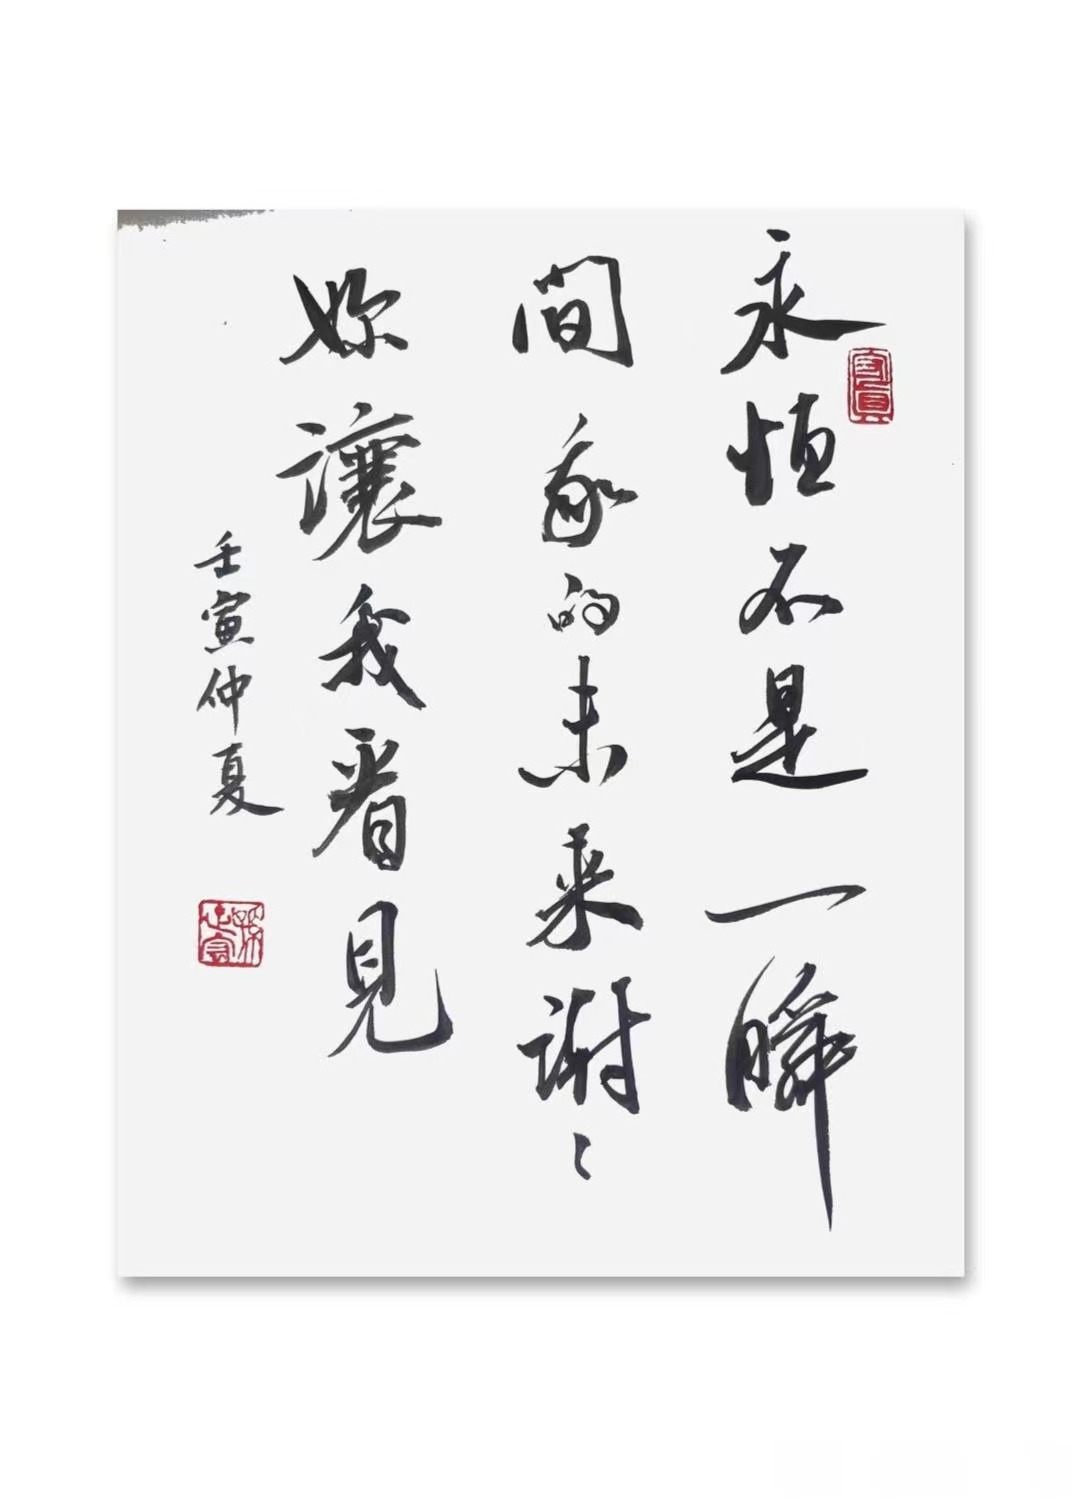 永恒不是一瞬
間我的未来謝〻
妳讓我看見
壬寅仲夏